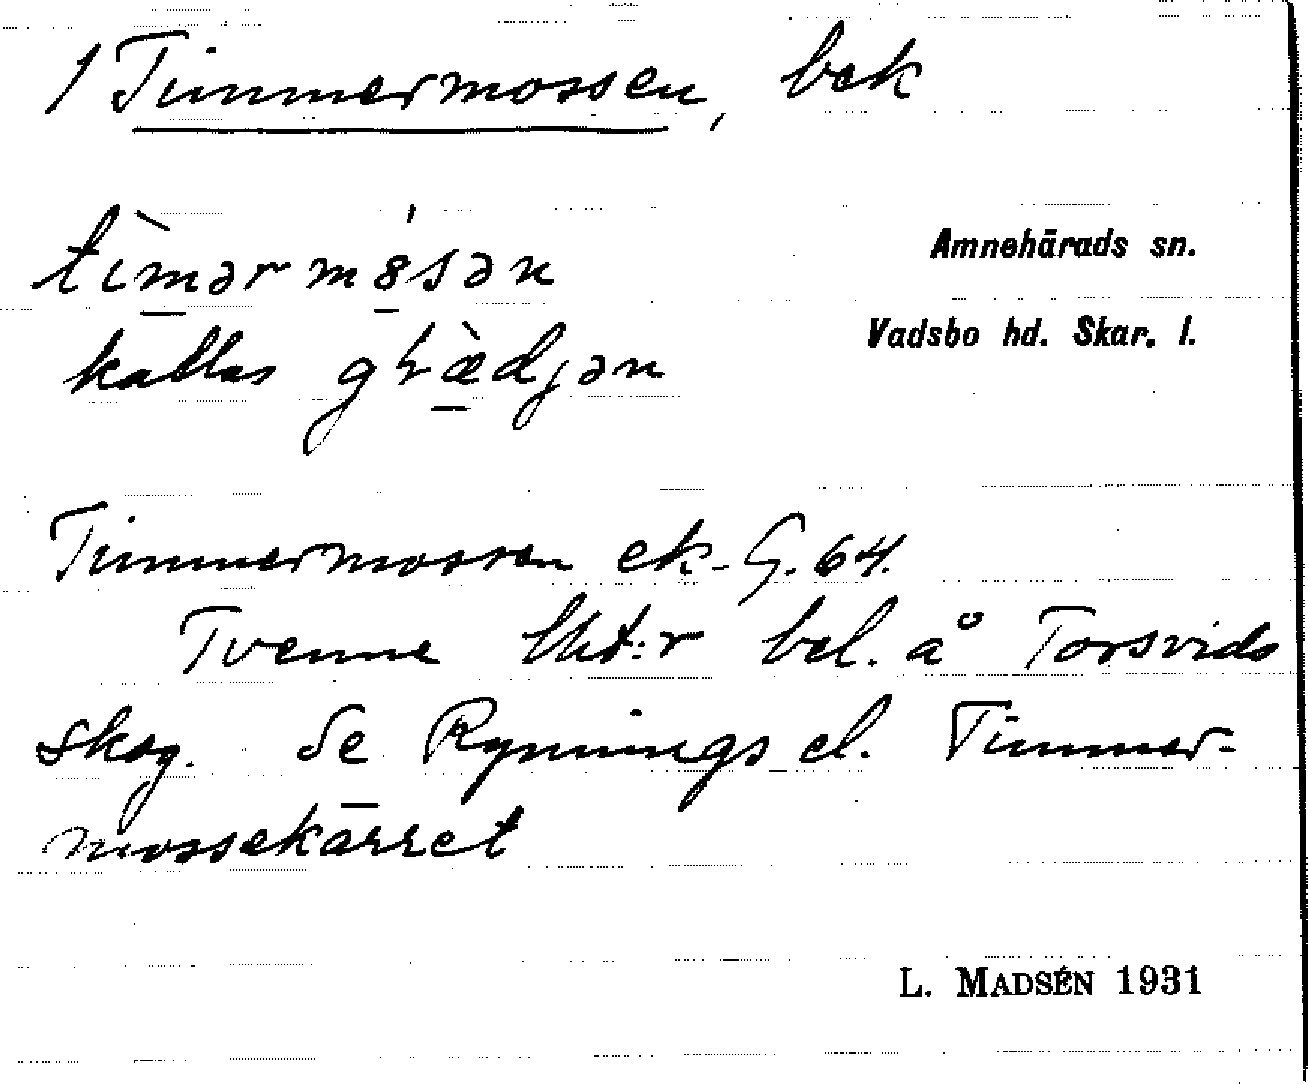 1 Timmermossen, bek
tìmərmósən
Amnehärads sn.
Vadsbo hd. Skar. l.
kallas græ̀djən
Timmermossen ek. G. 64.
Tvenne lht:r bel. å Torsvids
skog. Se Rynnings el. Timmer-
mossekärret
L. MADSÉN 1931